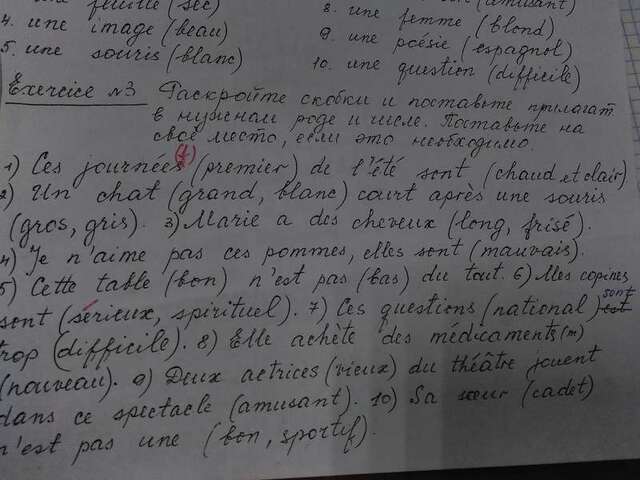 une feuille (sec)
4. une image (beau)
5. une souris (blanc)
(amusant)
8. une femme (blond)
9. une poésie (espagnol)
10. une question (difficile)
Exercice N3 Раскройте скобки и поставьте прилагат.
в нужном роде и числе. Поставьте на
своё место, если это необходимо.
1) Ces journées (f) (premier) de l'été sont (chaud et clair).
2) Un chat (grand, blanc) court après une souris
(gros, gris). 3) Marie a des cheveux (long, frisé).
4) Je n'aime pas ces pommes, elles sont (mauvais).
5) Cette table (bon) n'est pas (bas) du tout. 6) Mes copines
sont (sérieux, spirituel). 7) Ces questions (national) sont est
trop (difficile). 8) Elle achète des médicaments (m)
(nouveau). 9) Deux actrices (vieux) du théâtre jouent
dans ce spectacle (amusant). 10) Sa sœur (cadet)
n'est pas une (bon, sportif).